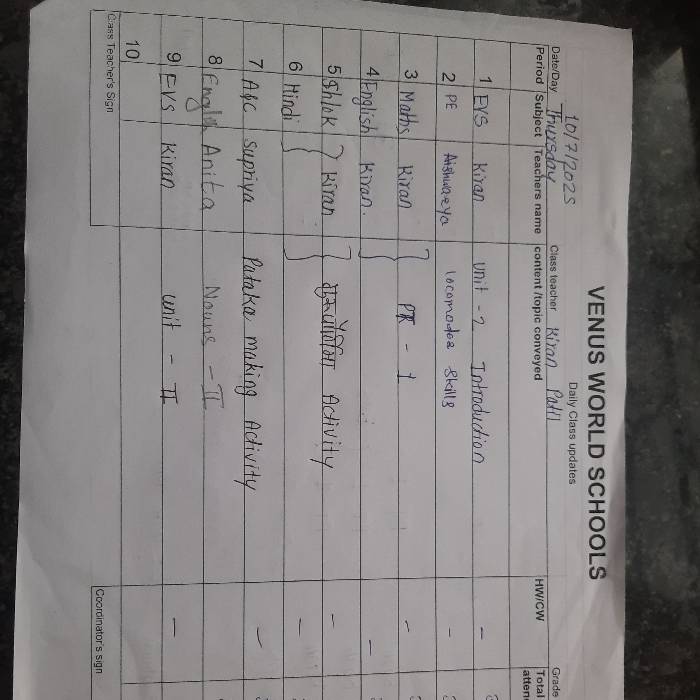 VENUS WORLD SCHOOLS
Daily Class updates
Date/Day 10/7/2025 Thursday Class teacher Kiran Patil Grade
Period Subject Teachers name content /topic conveyed HW/CW Total
1 EVS Kiran Unit - 2 Introduction -
2 PE Aishwarya locomodea Skills -
3 Maths Kiran } PT - 1 -
4 English Kiran. -
5 Shlok } Kiran } Activity -
6 Hindi -
7 A&C Supriya Pataka making Activity -
8 English Anita Nouns - II
9 EVS Kiran unit - II -
10
Class Teacher's Sign Coordinator's sign